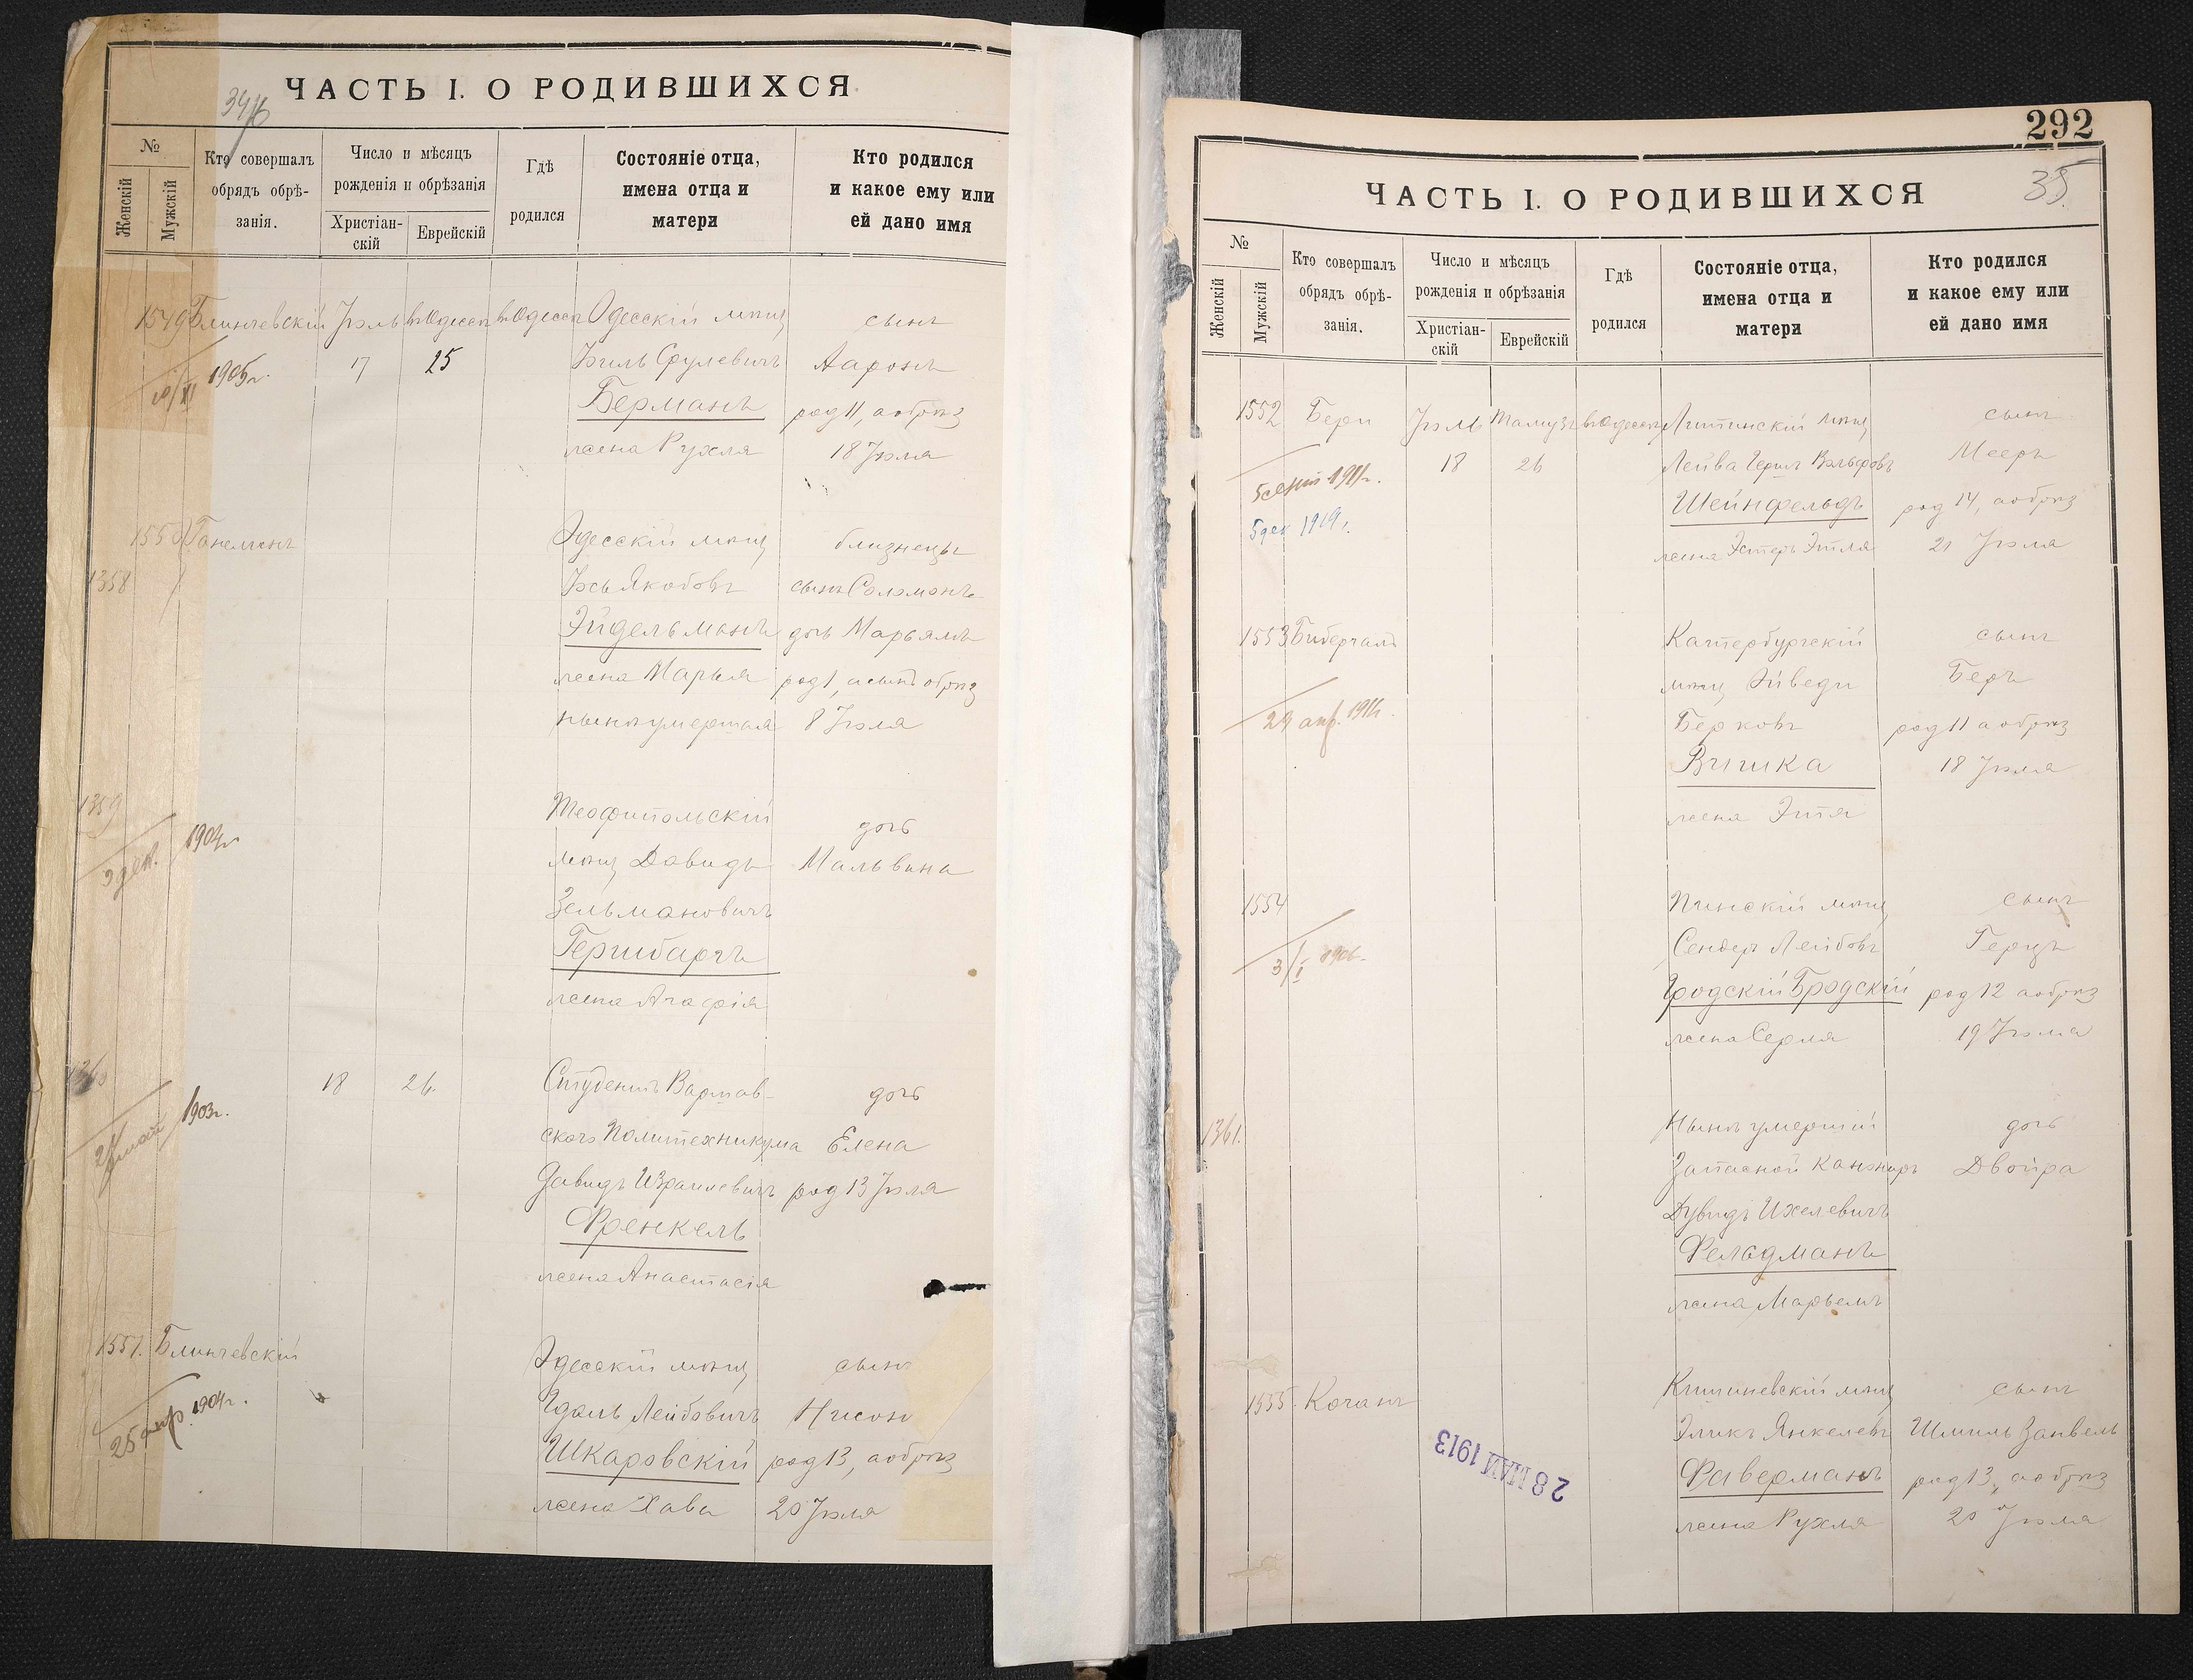 ЧАСТЬ I. О РОДИВШИХСЯ
№
Женскій
Мужскій
Кто совершалъ
обрядъ обрѣ-
занія.
Число и мѣсяцъ
рожденія и обрѣзанія
Христіан-
скій
Еврейскій
Гдѣ
родился
Состояніе отца,
имена отца и
матери
Кто родился
и какое ему или
ей дано имя
1549 Блинчевскій Іюль въ Одессѣ Одесскій мѣщ сынъ
1905г. 17 25 Срулевичъ Ааронъ
Берманъ род 11, а обрѣз
жена Рухля 18 Іюля
1550 Ганелинъ Одесскій мѣщ близнецы
1358 Іось Якобовъ сынъ Соломонъ
Эйдельманъ дочь Марьямъ
жена Марья род 1, а сынъ обрѣз
нынѣ умершая 8 Іюля
1359 Теофипольскій дочь
3 дек. 1904г мѣщ Давидъ Мальвина
Зельмановичъ
Гершбаргъ
жена Агафія
1360 18 26 Студентъ Варшав- дочь
1903г. скаго Политехникума Елена
Давидъ Израилевичъ род 13 Іюля
Френкель
жена Анастасія
1551. Блинчевскій Одесскій мѣщ сынъ
25 апр. 1904г. Лейбовичъ Нисон
Шкаровскій род 13, а обрѣз
жена Хава 20 Іюля
292
35.
ЧАСТЬ I. О РОДИВШИХСЯ
№
Женскій
Мужскій
Кто совершалъ
обрядъ обрѣ-
занія.
Число и мѣсяцъ
рожденія и обрѣзанія
Христіан-
скій
Еврейскій
Гдѣ
родился
Состояніе отца,
имена отца и
матери
Кто родился
и какое ему или
ей дано имя
1552 Бери Іюль Тамузъ въ Одессѣ Литинскій мѣщ сынъ
18 26 Лейба Герш Вольфовъ Мееръ
1911г. Шейнфельдъ род 14, а обрѣз
5 дек 1919г. жена Эстеръ Этля 21 Іюля
1553 Катербургскій сынъ
мѣщ Беръ
29 апр. Берковъ род 11 а обрѣз
18 Іюля
жена Этя
1554 Пинскій мѣщ сынъ
Сендеръ Лейбовъ Герцъ
3/I 1906. Гродскій Бродскій род 12 а обрѣз
жена Серля 19 Іюля
1361. Нынѣ умершій дочь
Запасной Канониръ Двойра
Дувидъ Ихелевичъ
Фельдманъ
жена Марьемъ
1555. Коганъ Кишиневскій мѣщ сынъ
28 МАЯ 1913
Эликъ Янкелевъ Шмиль Занвель
Фаверманъ род 13, а обрѣз
жена Рухля 20 Іюля